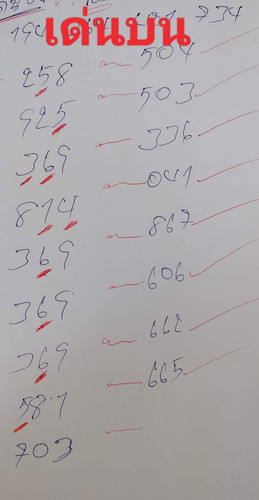 เด่นบน
194 734
504
258
503
925
336
369
041
814
867
369
606
369
662
369
665
587
703